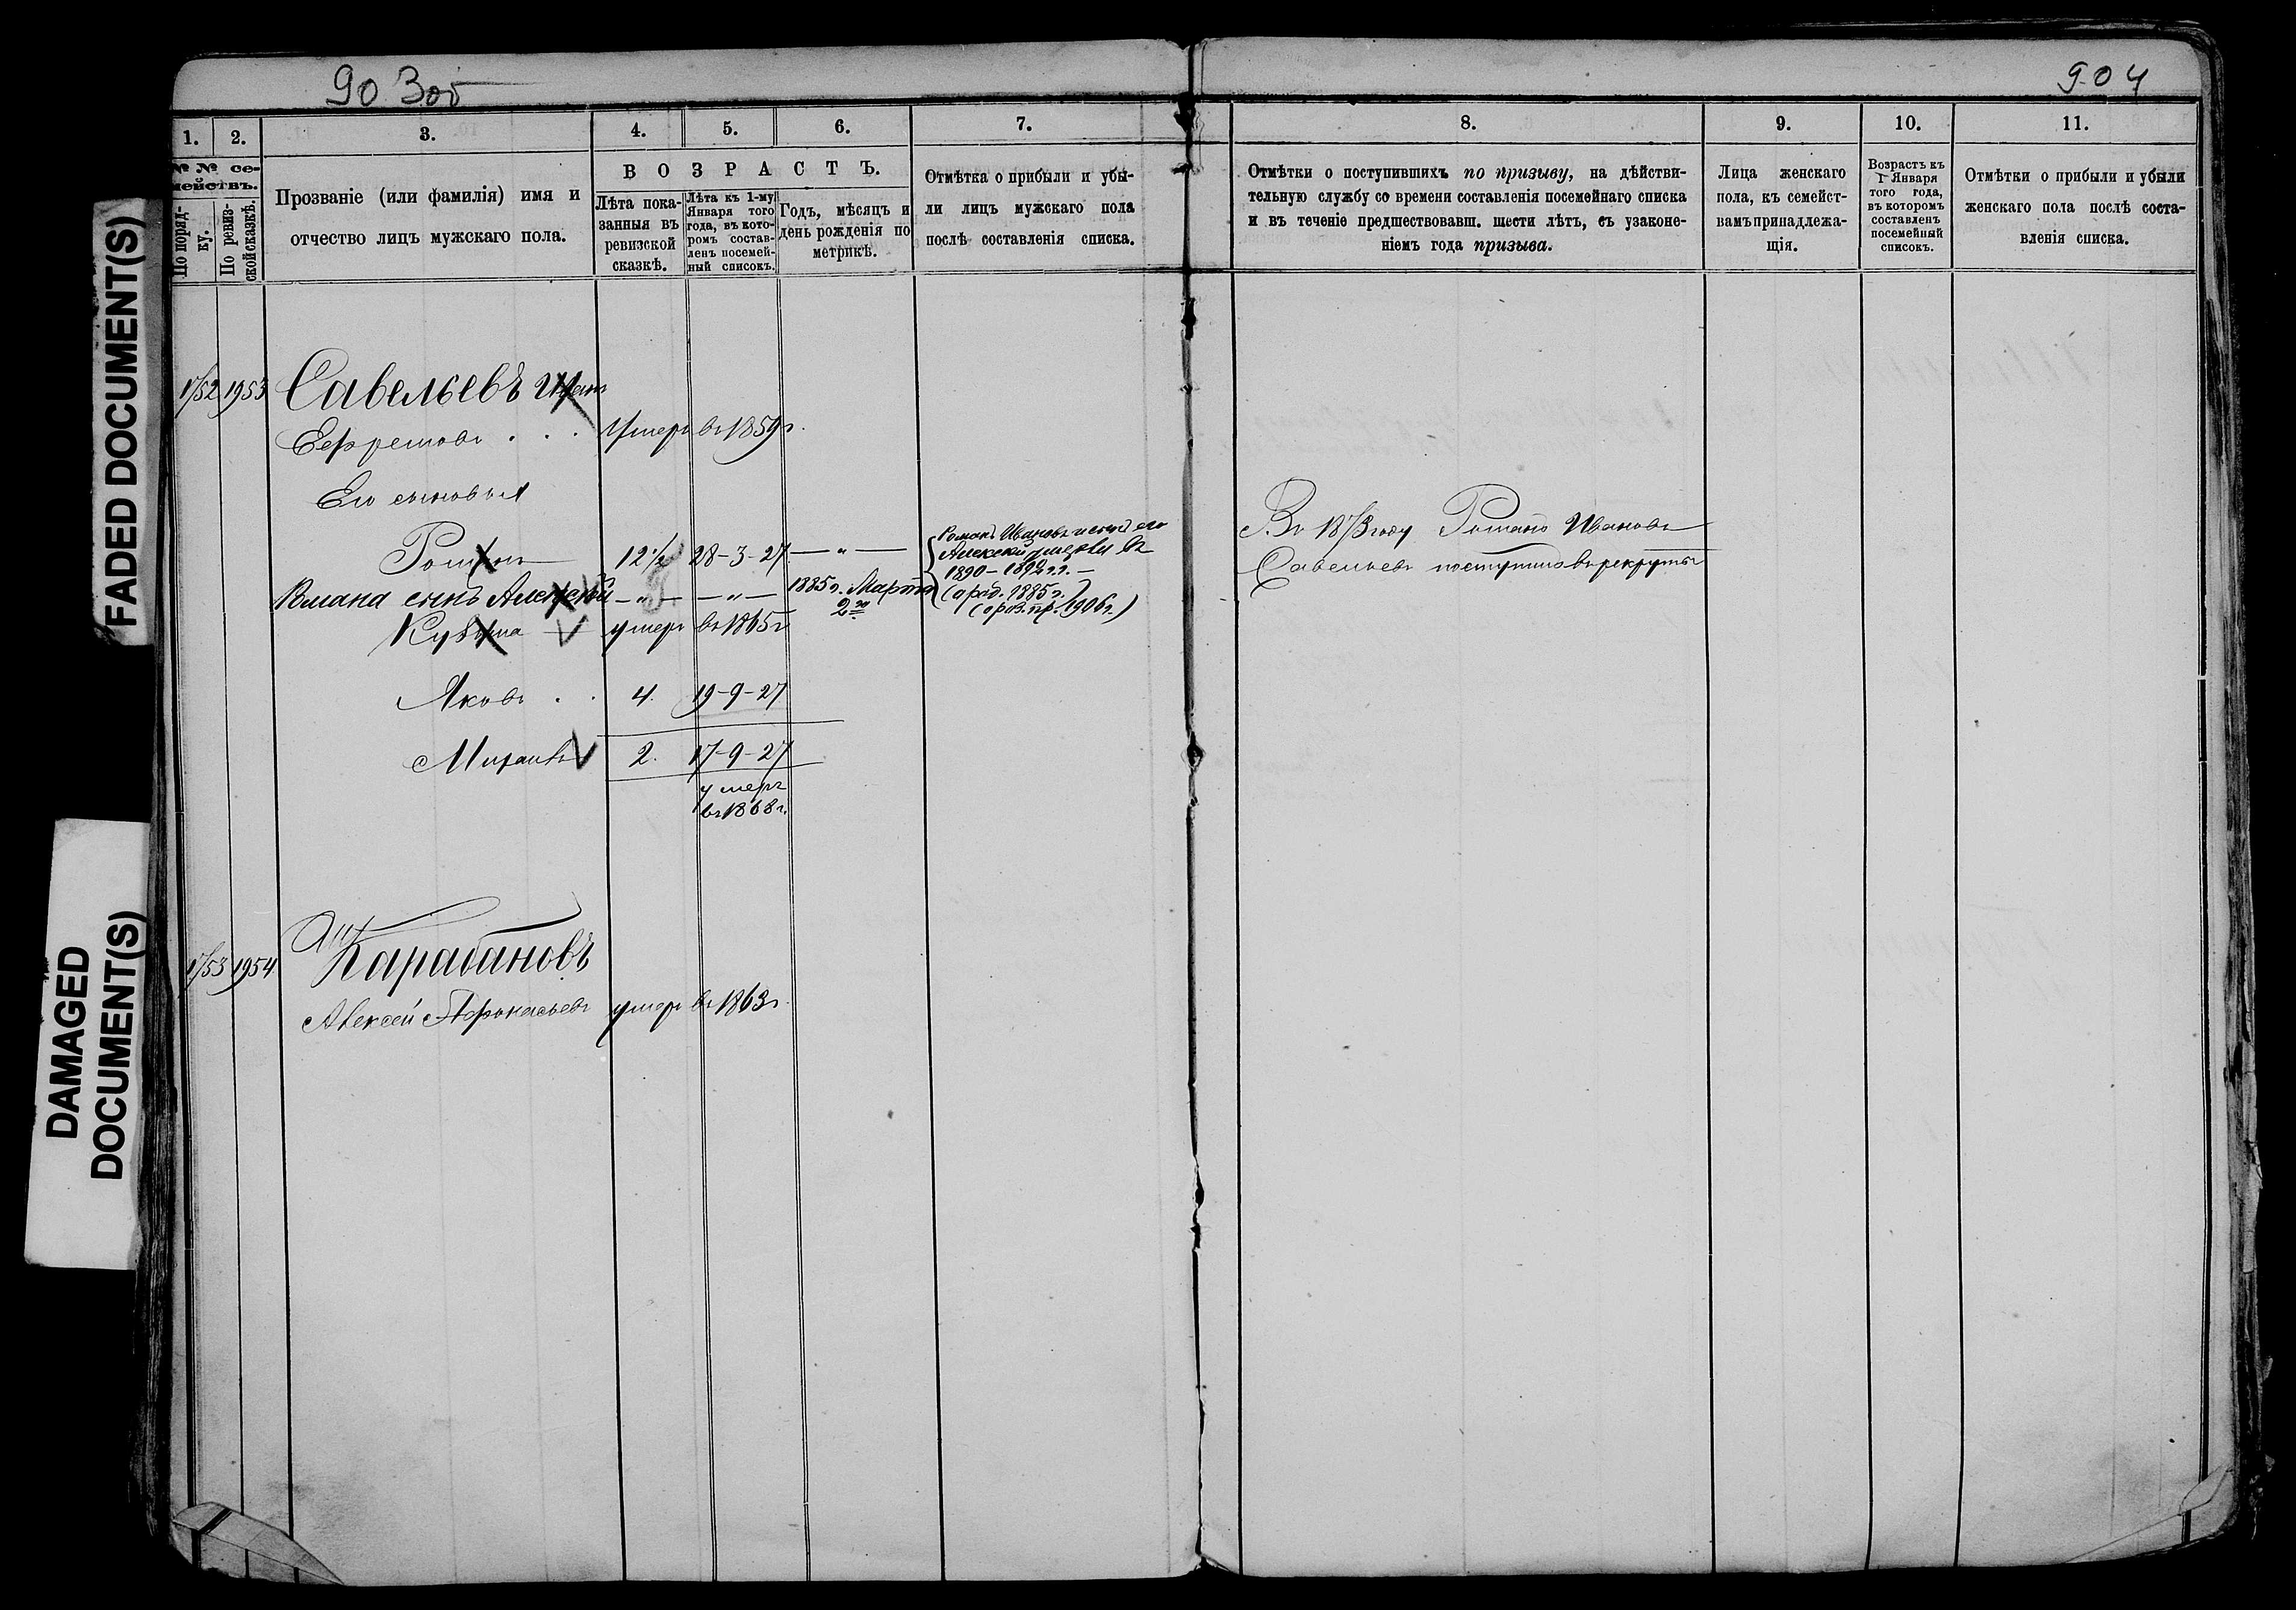 90 3об
904
1. 2. 3. 4. 5. 6. 7. 8. 9. 10. 11.
№ № се-
мействъ.
По поряд-
ку.
По ревиз-
ской сказкѣ.
Прозваніе (или фамилія) имя и
отчество лицъ мужскаго пола.
ВОЗРАСТЪ.
Лѣта пока-
занныя въ
ревизской
сказкѣ.
Лѣта къ 1-му
Января того
года, въ кото-
ромъ состав-
ленъ посемей-
ный списокъ.
Годъ, мѣсяцъ и
день рожденія по
метрикѣ.
Отмѣтка о прибыли и убы-
ли лицъ мужскаго пола
послѣ составленія списка.
Отмѣтки о поступившихъ по призыву, на дѣйстви-
тельную службу со времени составленія посемейнаго списка
и въ теченіе предшествовавш. шести лѣтъ, съ узаконе-
ніемъ года призыва.
Лица женскаго
пола, къ семейст-
вамъ принадлежа-
щія.
Возрастъ къ
1 Января
того года,
въ которомъ
составленъ
посемейный
списокъ.
Отмѣтки о прибыли и убыли
женскаго пола послѣ соста-
вленія списка.
1752 1953 Савельевъ Иванъ
Ефремовъ . . . Умеръ въ 1859 г.
Его сыновья
Романъ 12½ 28-3-27 — „ —
Романъ Ивановъ и сынъ его
Алексѣй умерли въ
1890-1892 г.г. —
(о род. 1885 г.)
(о роз. пр. 1906 г.)
Въ 1873 году Романъ Ивановъ
Савельевъ поступилъ въ рекруты
Романа сынъ Алексѣй — „ — — „ — 1885 г. Марта
2го
Кузьма умеръ въ 1865 г
Яковъ . . 4. 19-9-27
Миронъ 2. 17-9-27
умеръ
въ 1868 г.
1753 1954 Карабановъ
Алексей Афонасьевъ умеръ въ 1863 г.
FADED DOCUMENT(S)
DAMAGED
DOCUMENT(S)